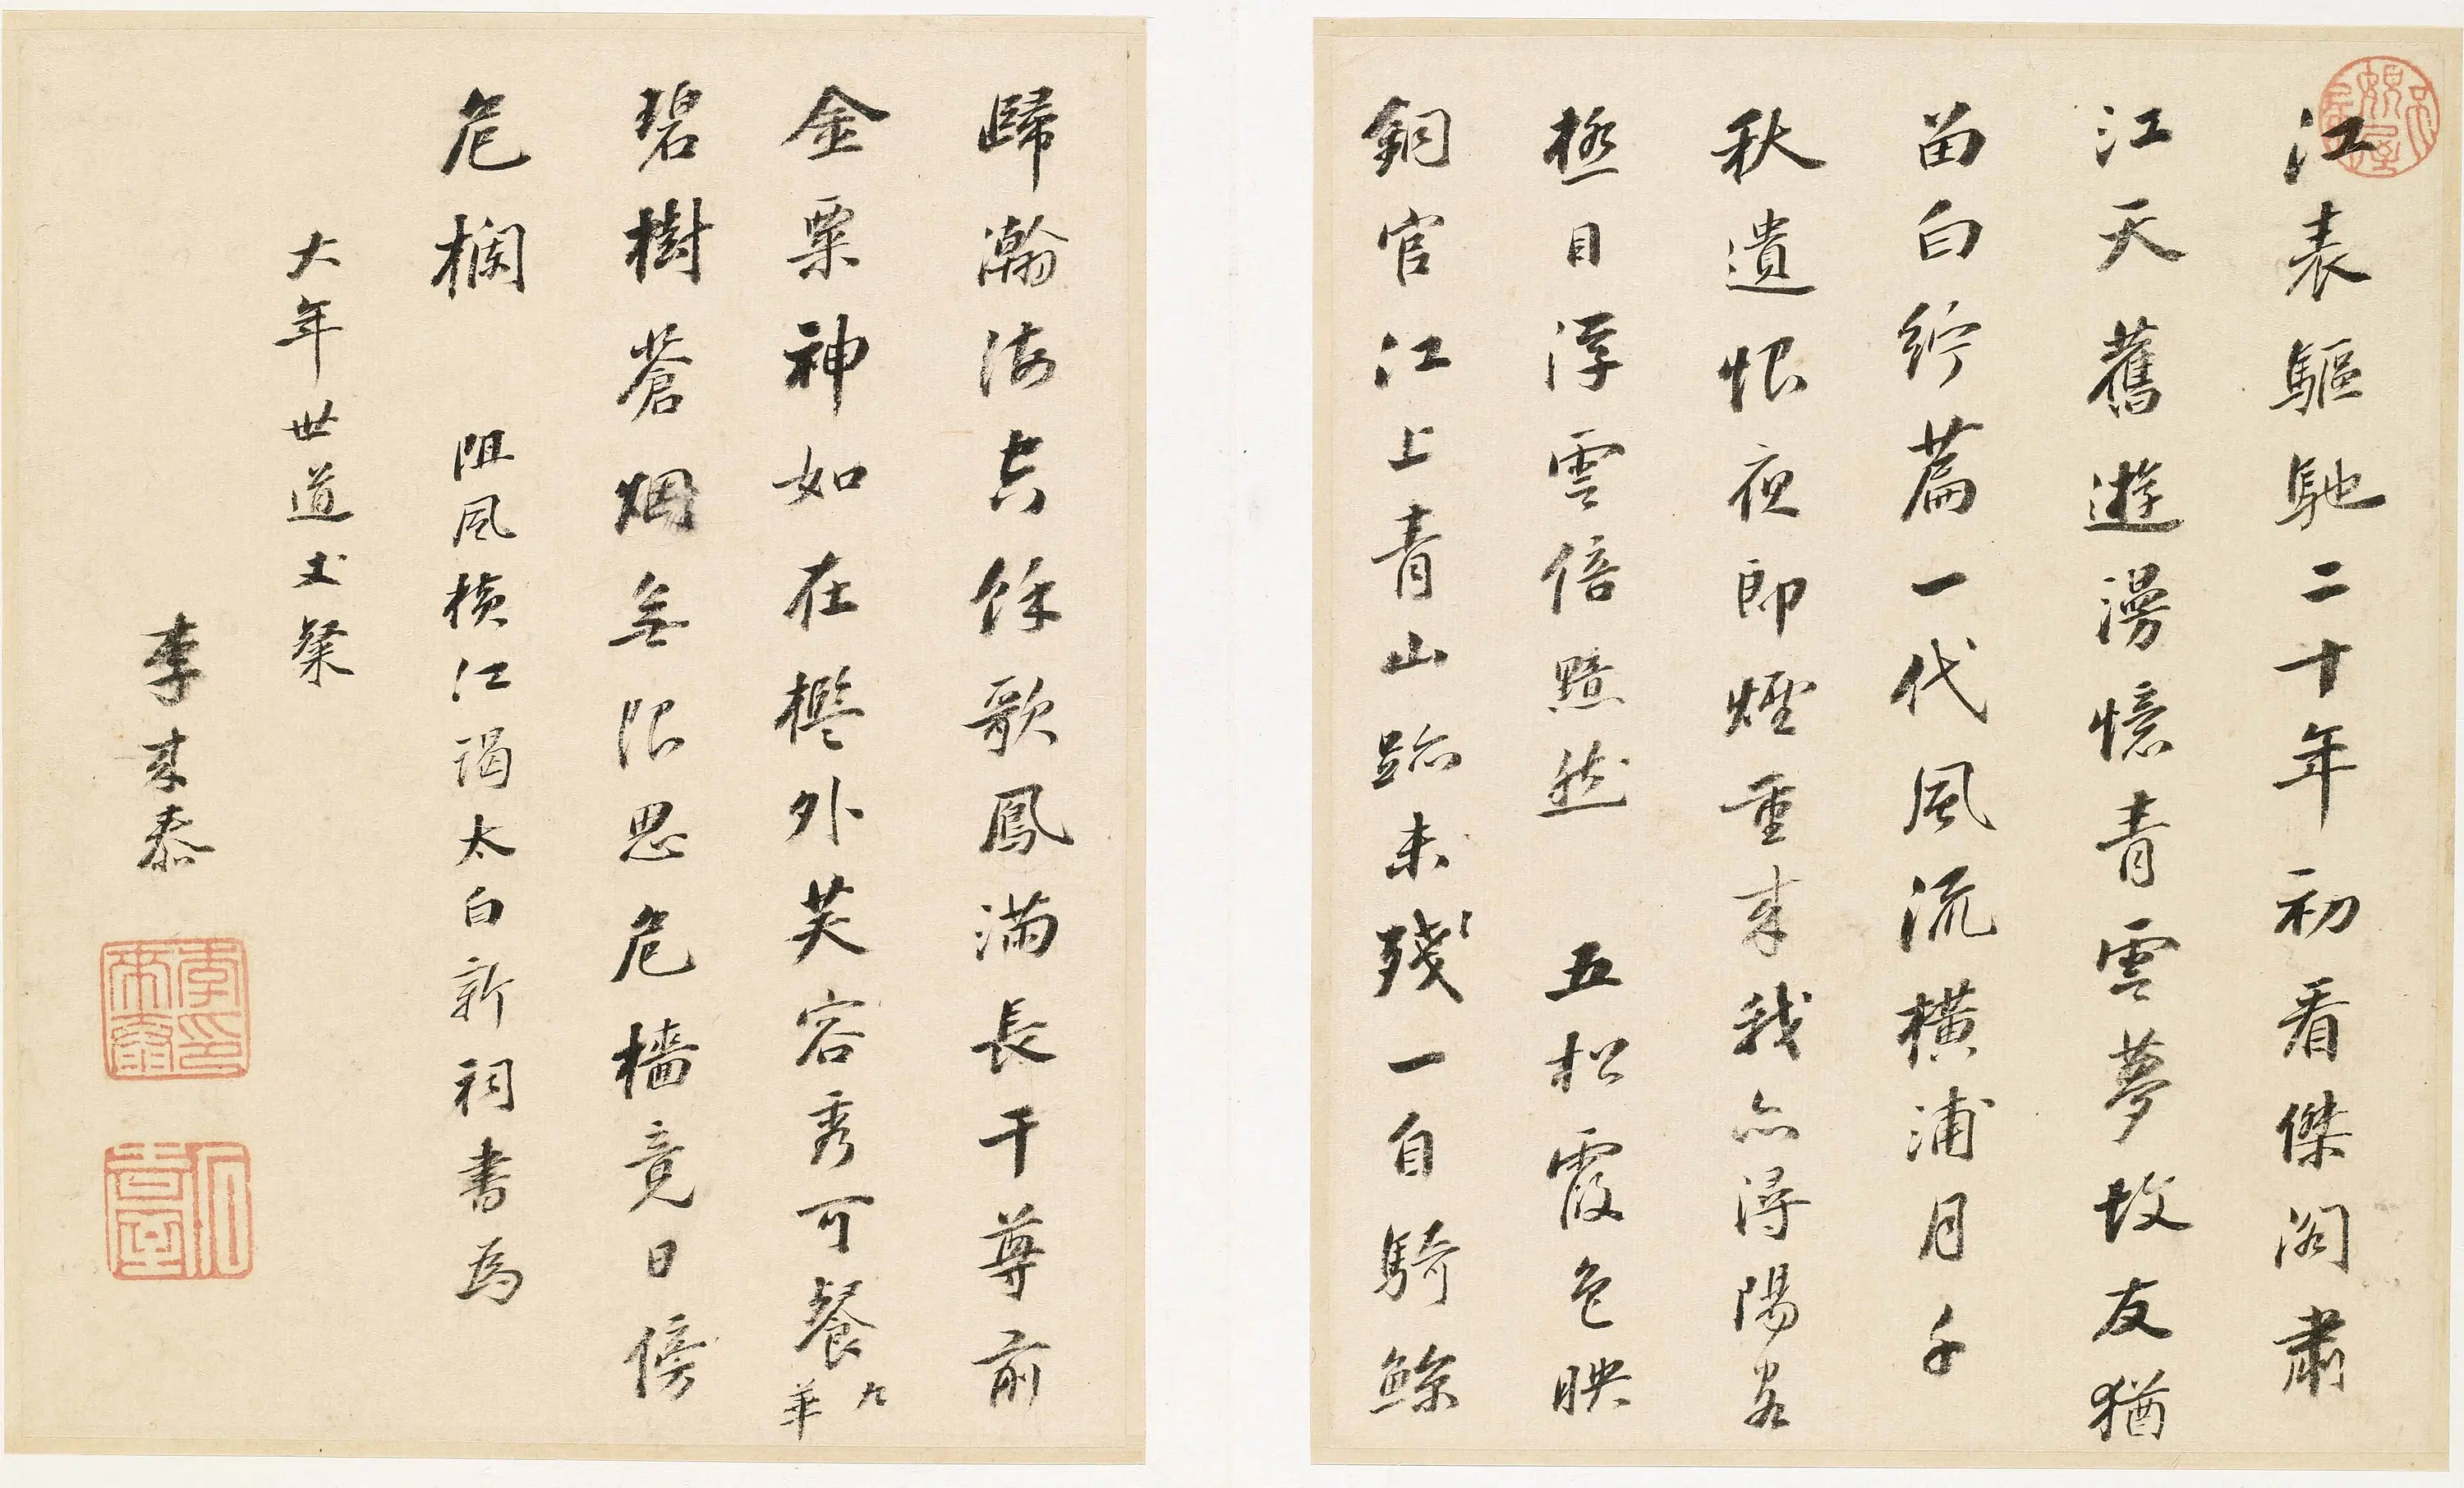 江表驅馳二十年初看傑閣肅
江天舊遊漫憶青雲夢故友猶
留白紵篇一代風流橫浦月千
秋遺恨夜郎煙重來我亦潯陽客
極目浮雲倍黯然 五松霞色映
銅官江上青山跡未殘一自騎鯨
歸瀚海長餘歌鳳滿長干尊前
金粟神如在檻外芙容秀可餐九華
碧樹蒼烟無限思危檣竟日傍
危欄 阻風橫江謁太白新祠書為
大年世道丈粲
李來泰
李來泰印
石臺